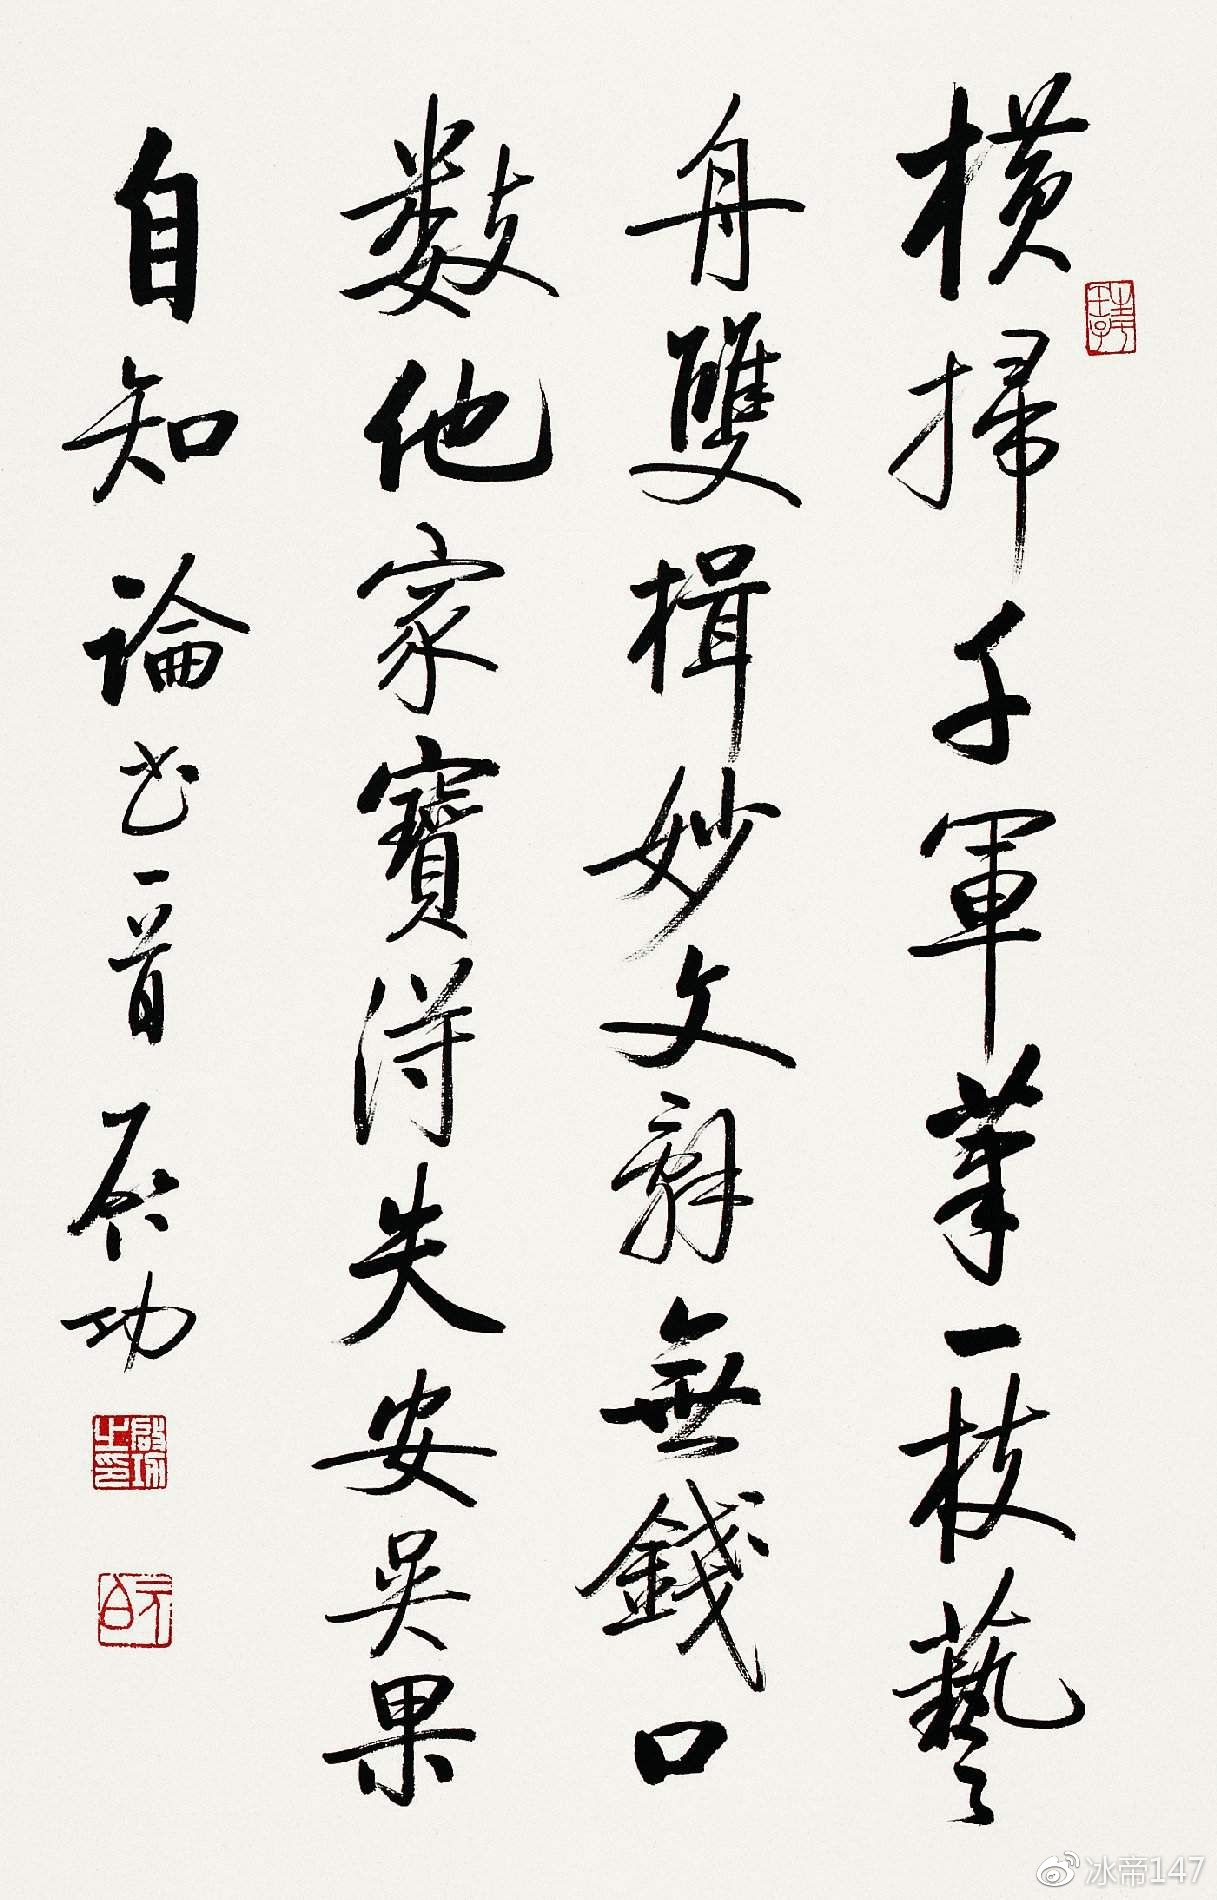 橫掃千軍筆一枝藝
舟雙楫妙文辭無錢口
數他家寶得失安吳果
自知 論书一首 启功
啟功之印
元白
冰帝147